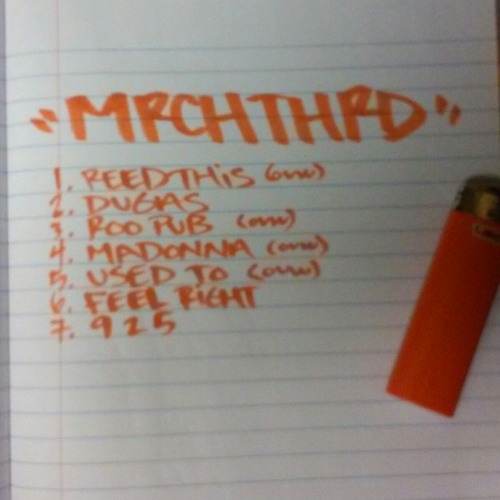 "MRCHTHRD"
1. REEDTHIS (onw)
2. DUGAS
3. ROO PUB (onw)
4. MADONNA (onw)
5. USED TO (onw)
6. FEEL RIGHT
7. 925